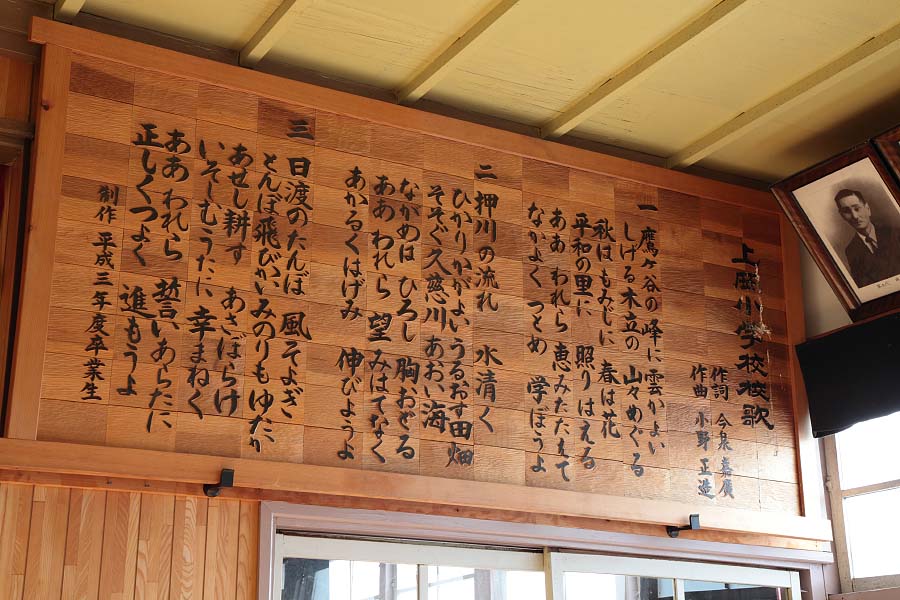 上歴小学校校歌
作詞 今泉嘉廣
作曲 小野正造
一 鷹ヶ谷の峰に雲かよい
しげる木立の 山々めぐる
秋はもみじに 春は花
平和の里に 照りはえる
ああ われら 恵みたたえて
なかよく つとめ 学ぼうよ
二 押川の流れ 水清く
ひかりかがよい うるおす田畑
そそぐ久慈川 あおい海
ながめは ひろし 胸おどる
ああ われら 望みはてなく
あかるくはげみ 伸びようよ
三 日渡のたんぼ 風そよぎ
とんぼ飛びかい みのりもゆたか
あせし耕す あさぼらけ
いそしむうたに 幸まねく
ああ われら 誓いあらたに
正しくつよく 進もうよ
制作 平成三年度卒業生